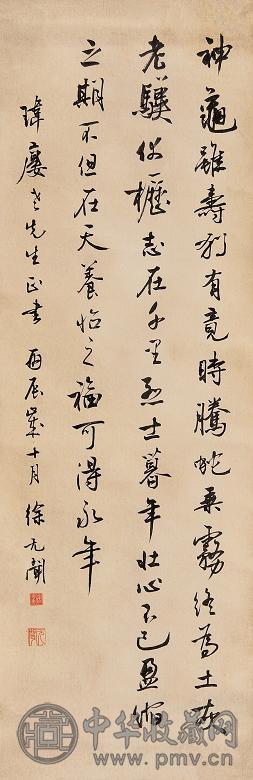 神龜雖壽猶有竟時騰蛇乘霧終為土灰
老驥伏櫪志在千里烈士暮年壯心不已盈縮
之期不但在天養怡之福可得永年
瑋廔老先生正書 丙辰歲十月 徐元聞
中华收藏网
www.pmv.cn